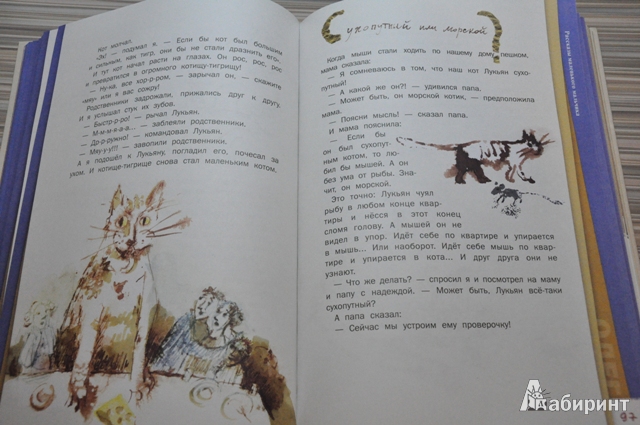 Кот молчал.
— Эх! — подумал я. — Если бы кот был большим
и сильным, как тигр, они бы не стали дразнить его.
И тут кот начал расти на глазах. Он рос, рос, рос
и превратился в огромного котищу-тигрищу!
— Ну-ка, все хор-р-ром, — зарычал он, — скажите
«мяу» или я вас сожру!
Родственники задрожали, прижались друг к другу.
И я услышал стук их зубов.
— Быстр-р-ро! — рычал Лукьян.
— М-м-м-я-а-а... — заблеяли родственники.
— Др-р-ружно! — командовал Лукьян.
— Мяу-у-у!!! — завопили родственники.
А я подошёл к Лукьяну, погладил его, почесал за
ухом. И котище-тигрище снова стал маленьким котом.
Сухопутный или морской?
Когда мыши стали ходить по нашему дому пешком,
мама сказала:
— Я сомневаюсь в том, что наш кот Лукьян сухо-
путный!
— А какой же он?! — удивился папа.
— Может быть, он морской котик, — предположила
мама.
— Поясни мысль! — сказал папа.
И мама пояснила:
— Если бы
он был сухопут-
ным котом, то лю-
бил бы мышей. А он
без ума от рыбы. Зна-
чит, он морской.
Это точно: Лукьян чуял
рыбу в любом конце квар-
тиры и нёсся в этот конец
сломя голову. А мышей он не
видел в упор. Идёт себе мышь и упирается
в мышь... Или наоборот. Идёт себе мышь по квар-
тире и упирается в кота... И друг друга они не
узнают.
— Что же делать? — спросил я и посмотрел на маму
и папу с надеждой. — Может быть, Лукьян всё-таки
сухопутный?
А папа сказал:
— Сейчас мы устроим ему проверочку!
Рассказы маленького мальчика
87
Лабиринт